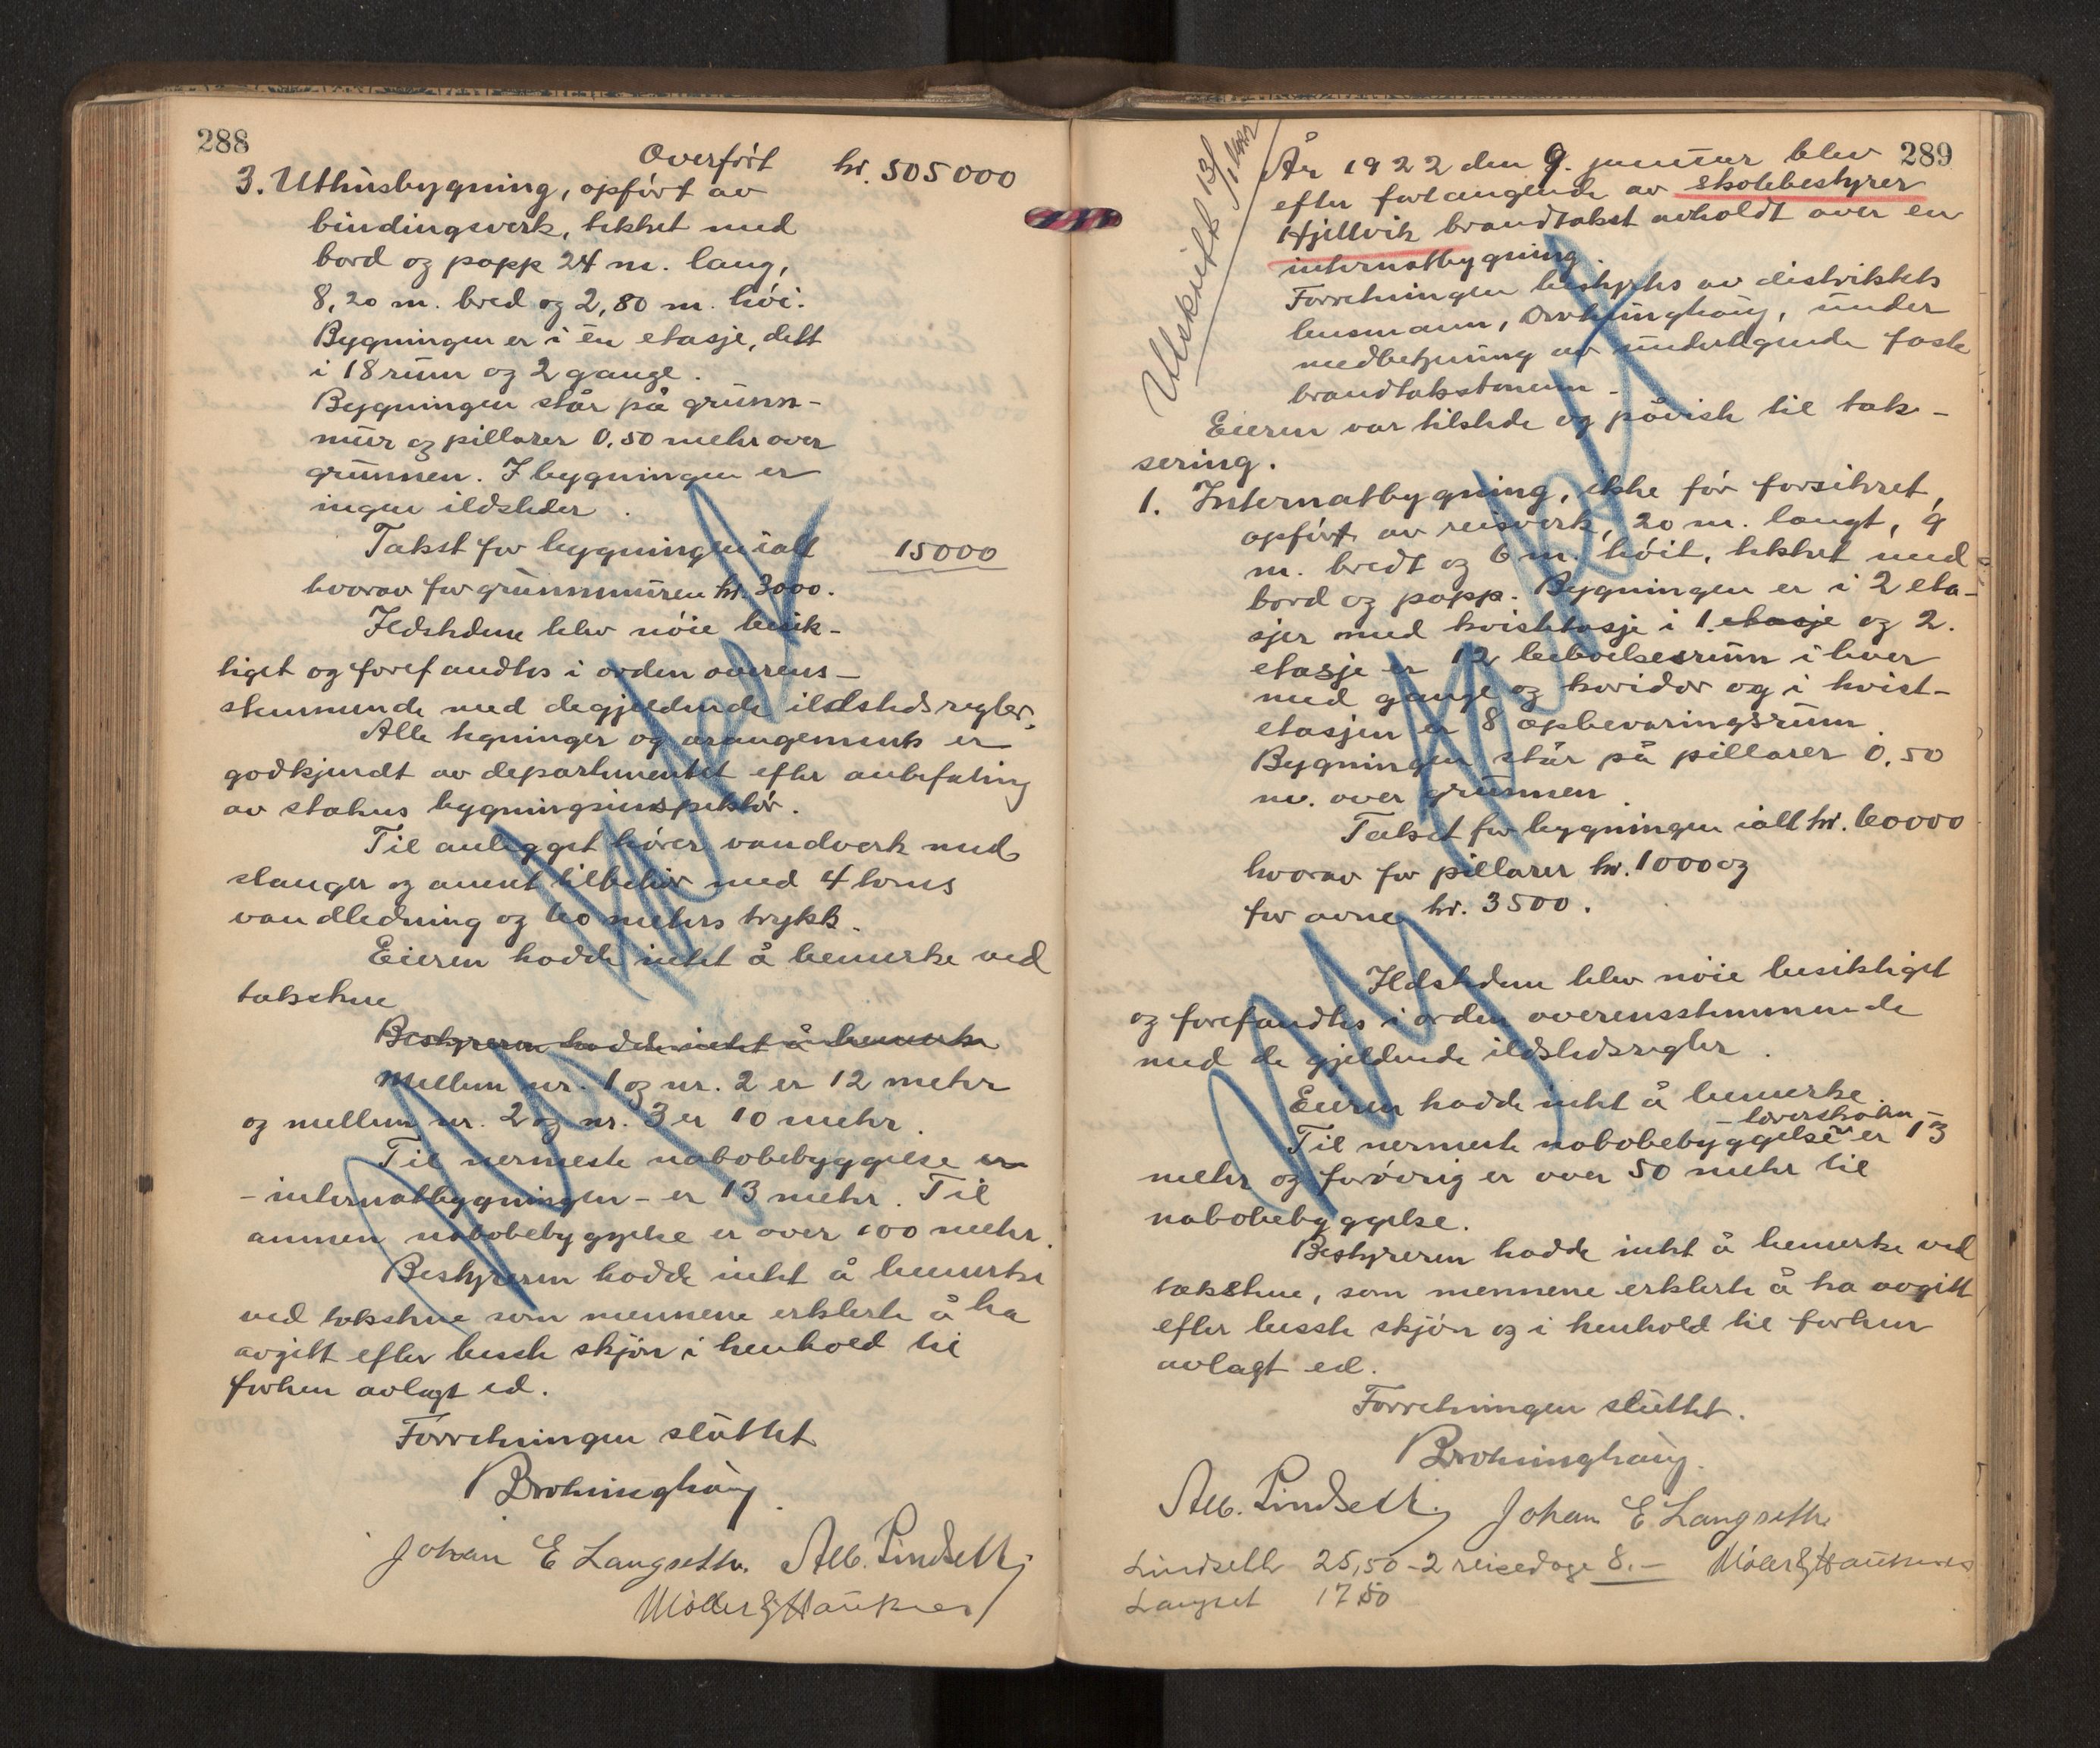 288
Overført kr. 505000
3. Uthusbygning, opført av
bindingsverk, tekket med
bord og papp 24 m. lang,
8,20 m. bred og 2,80 m. høi.
Bygningen er i én etasje, delt
i 18 rum og 2 gange.
Bygningen står på grunn-
mur og pillarer 0,50 meter over
grunnen. I bygningen er
ingen ildsteder.
Takst for bygningen ialt 15000
hvorav for grunnmuren kr. 3000.
Ildstedene blev nøie besik-
tiget og forefandtes i orden overens-
stemmende med de gjeldende ildstedsregler.
Alle tegninger og arangements er
godkjendt av departementet efter anbefaling
av statens bygningsinspektør.
Til anlegget hører vandverk med
slanger og annet tilbehør med 4 toms
vandledning og 60 meters trykk.
Eieren hadde intet å bemerke ved
takstene
Bestyreren hadde intet å bemerke
Mellem nr. 1 og nr. 2 er 12 meter
og mellem nr. 2 og nr. 3 er 10 meter.
Til nermeste nabobebyggelse er
- internatbygningen - er 13 meter. Til
annen nabobebyggelse er over 100 meter.
Bestyreren hadde intet å bemerke
ved takstene som mennene erklerte å ha
avgitt efter beste skjøn i henhold til
forhen avlagt ed.
Forretningen sluttet
Johan E Langseth. Alb. Lindseth
289
Utskrift 13/1 1922
År 1922 den 9. januar blev
efter forlangende av skolebestyrer
Hjellvik brandtakst avholdt over en
internatbygning.
Forretningen bestyrtes av distriktets
lensmann, under
medbetjening av undertegnede faste
brandtakstmenn.
Eieren var tilstede og påviste til tak-
sering.
1. Internatbygning, ikke før forsikret,
opført av reisverk, 20 m. langt, 9
m. bredt og 6 m. høit, tekket med
bord og papp. Bygningen er i 2 eta-
sjer med kvistetasje i 1. etasje og 2.
etasje er 12 beboelsesrum i hver
med gange og koridor og i kvist-
etasjen er 8 opbevaringsrum.
Bygningen står på pillarer 0,50
m. over grunnen.
Takst for bygningen ialt kr. 60000
hvorav for pillarer kr. 1000 og
for ovne kr. 3500.
Ildstedene blev nøie besiktiget
og forefandtes i orden overensstemmende
med de gjeldende ildstedsregler.
Eieren hadde intet å bemerke.
Til nermeste nabobebyggelse er 13
meter og forøvrig er over 50 meter til
nabobebyggelse.
Bestyreren hadde intet å bemerke ved
takstene, som mennene erklerte å ha avgitt
efter beste skjøn og i henhold til forhen
avlagt ed.
Forretningen sluttet.
Alb. Lindseth Johan E Langseth
Lindseth 25,50 - 2 reisedage 8.-
Langset 17 50